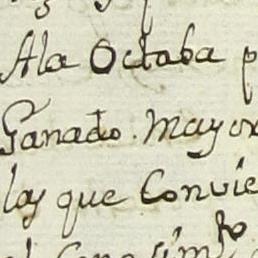 Ala Octaba p
Ganado. Mayor
lay que Convie